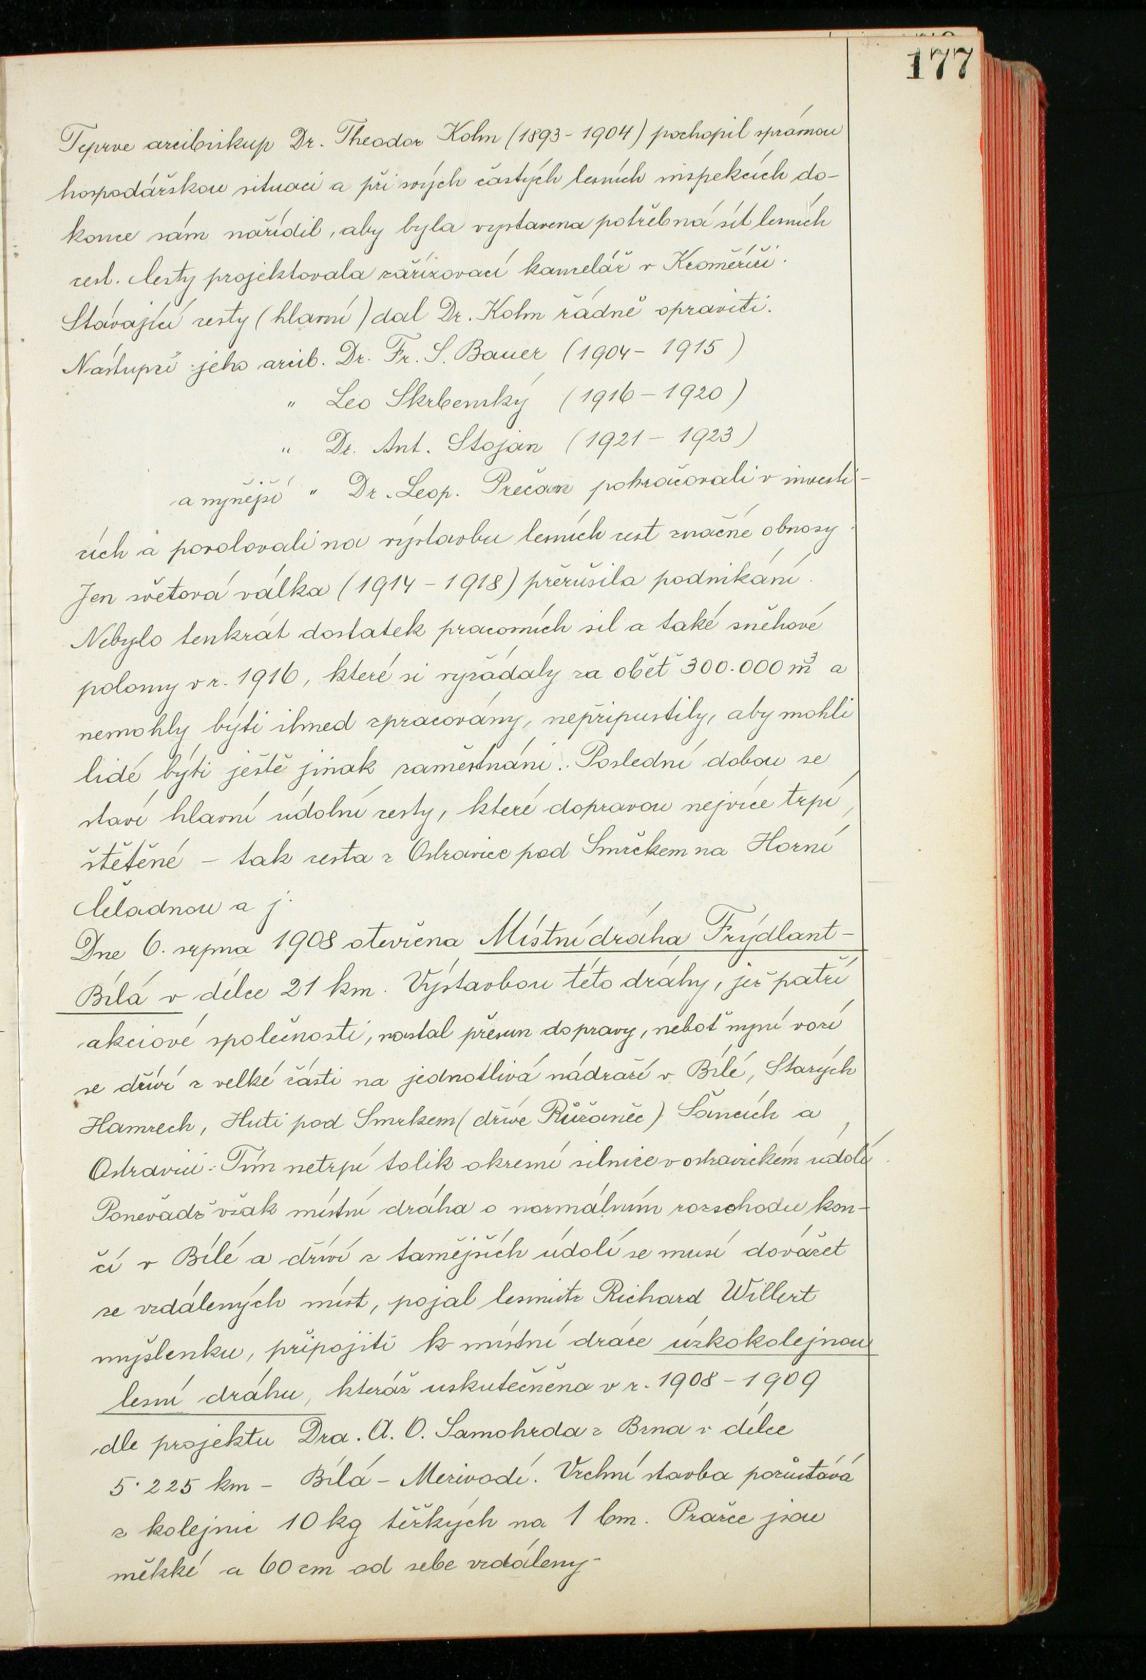 177
Teprve arcibiskup Dr. Theodor Kohn (1893-1904) pochopil správnou
hospodářskou situaci a při svých častých lesních inspekcích do-
konce sám nařídil, aby byla vystavena potřebná síť lesních
cest. Cesty projektovala zařizovací kancelář v Kroměříži.
Stávající cesty (hlavní) dal Dr. Kohn řádně opraviti.
Nástupci jeho arcib. Dr. Fr. S. Bauer (1904-1915)
" Leo Skrbenský (1916-1920)
" Dr. Ant. Stojan (1921-1923)
a nynější " Dr. Leop. Prečan pokračovali v investi-
cích a povolovali na výstavbu lesních cest značné obnosy.
Jen světová válka (1914-1918) přerušila podnikání.
Nebylo tenkrát dostatek pracovních sil a také sněhové
polomy v r. 1916, které si vyžádaly za oběť 300.000 m³ a
nemohly býti ihned zpracovány, nepřipustily, aby mohli
lidé býti ještě jinak zaměstnáni. Poslední dobou se
staví hlavní údolní cesty, které dopravou nejvíce trpí,
štětěné – tak cesta z Ostravice pod Smrčkem na Horní
Čeladnou a j.
Dne 6. srpna 1908 otevřena Místní dráha Frýdlant-
Bílá v délce 21 km. Výstavbou této dráhy, jež patří
akciové společnosti, nastal přesun dopravy, neboť nyní vozí
se dříví z velké části na jednotlivá nádraží v Bílé, Starých
Hamrech, Huti pod Smrkem (dříve Růžanec) Šancích a
Ostravici. Tím netrpí tolik okresní silnice v ostravickém údolí.
Poněvadž však místní dráha o normálním rozchodu kon-
čí v Bílé a dříví z tamějších údolí se musí dovážet
ze vzdálených míst, pojal lesmistr Richard Willert
myšlenku, připojiti k místní dráze úzkokolejnou
lesní dráhu, kteráž uskutečněna v r. 1908-1909
dle projektu Dra. A. O. Samohrda z Brna v délce
5.225 km – Bílá – Mezivodí. Vrchní stavba pozůstává
z kolejnic 10 kg těžkých na 1 bm. Pražce jsou
měkké a 60 cm od sebe vzdáleny-